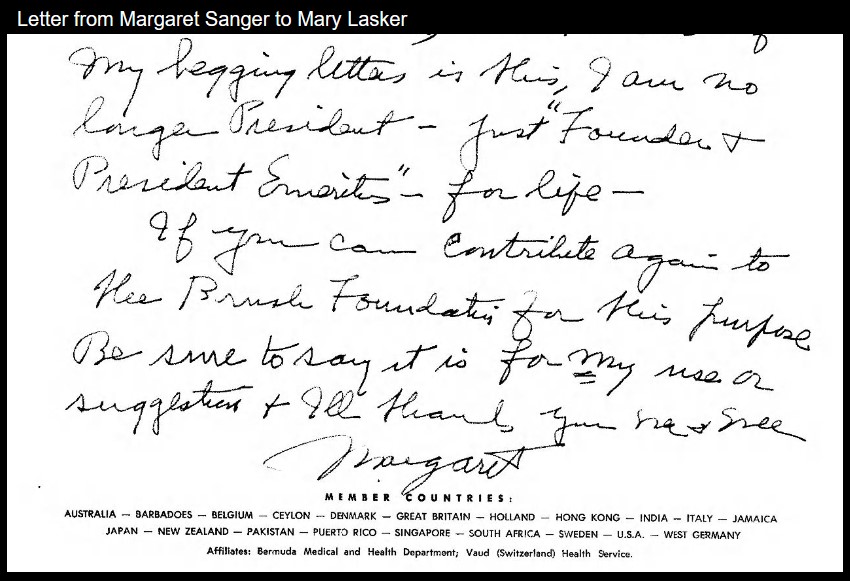 Letter from Margaret Sanger to Mary Lasker
My begging letters is this, I am no
longer President – just "Founder &
President Emeritus" – for life –
If you can contribute again to
the Brush Foundation for this purpose
Be sure to say it is for my use or
suggestion & I'll thank you
Margaret
MEMBER COUNTRIES:
AUSTRALIA — BARBADOES — BELGIUM — CEYLON — DENMARK — GREAT BRITAIN — HOLLAND — HONG KONG — INDIA — ITALY — JAMAICA
JAPAN — NEW ZEALAND — PAKISTAN — PUERTO RICO — SINGAPORE — SOUTH AFRICA — SWEDEN — U.S.A. — WEST GERMANY
Affiliates: Bermuda Medical and Health Department; Vaud (Switzerland) Health Service.